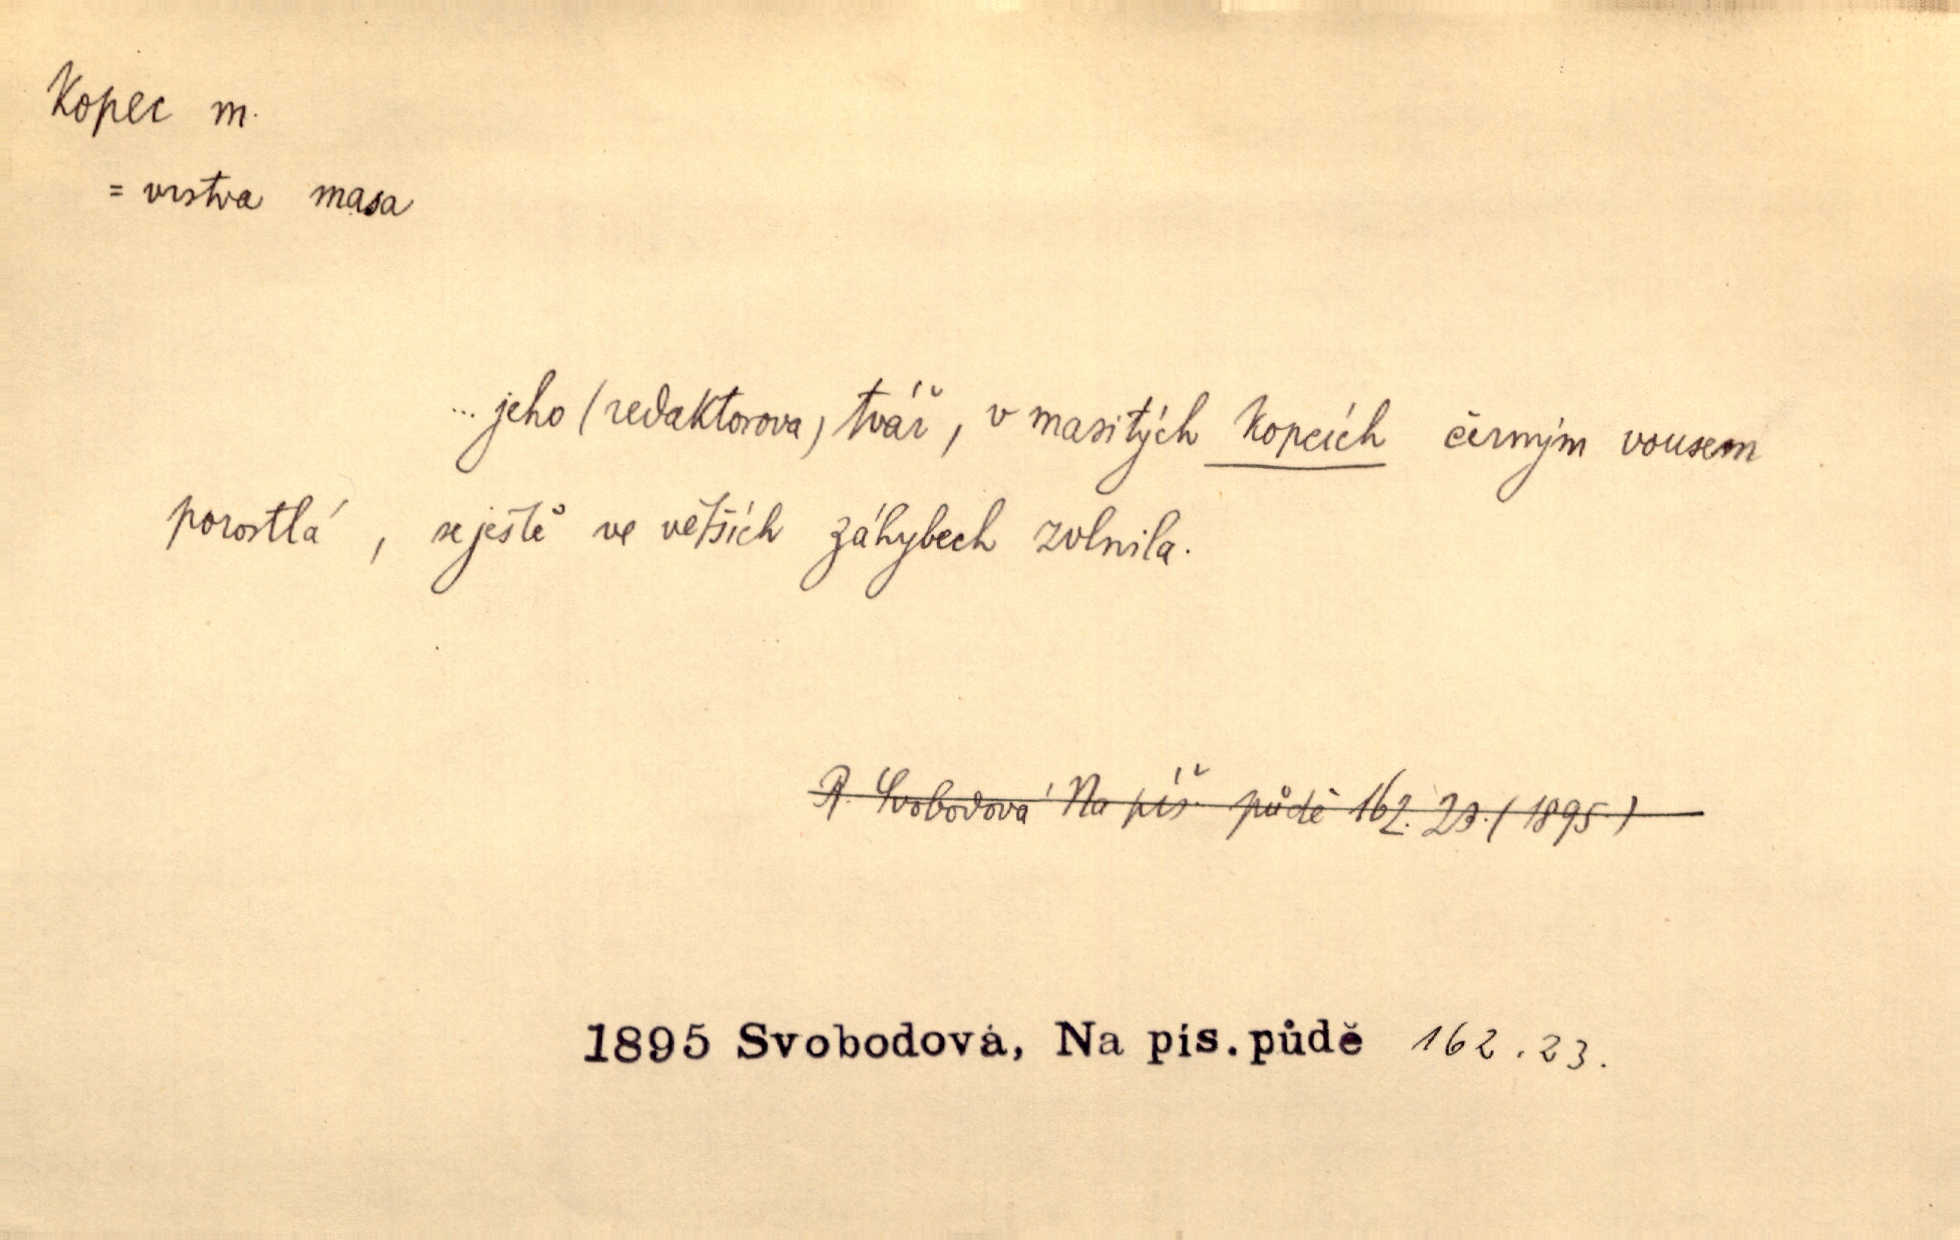 Kopec m.
= vrstva masa
... jeho (redaktorova) tvář, v masitých kopcích černým vousem
porostlá, se ještě ve větších záhybech zvlnila.
R. Svobodová Na píš. půdě 162. 23. (1895.)
1895 Svobodová, Na pís. půdě 162.23.